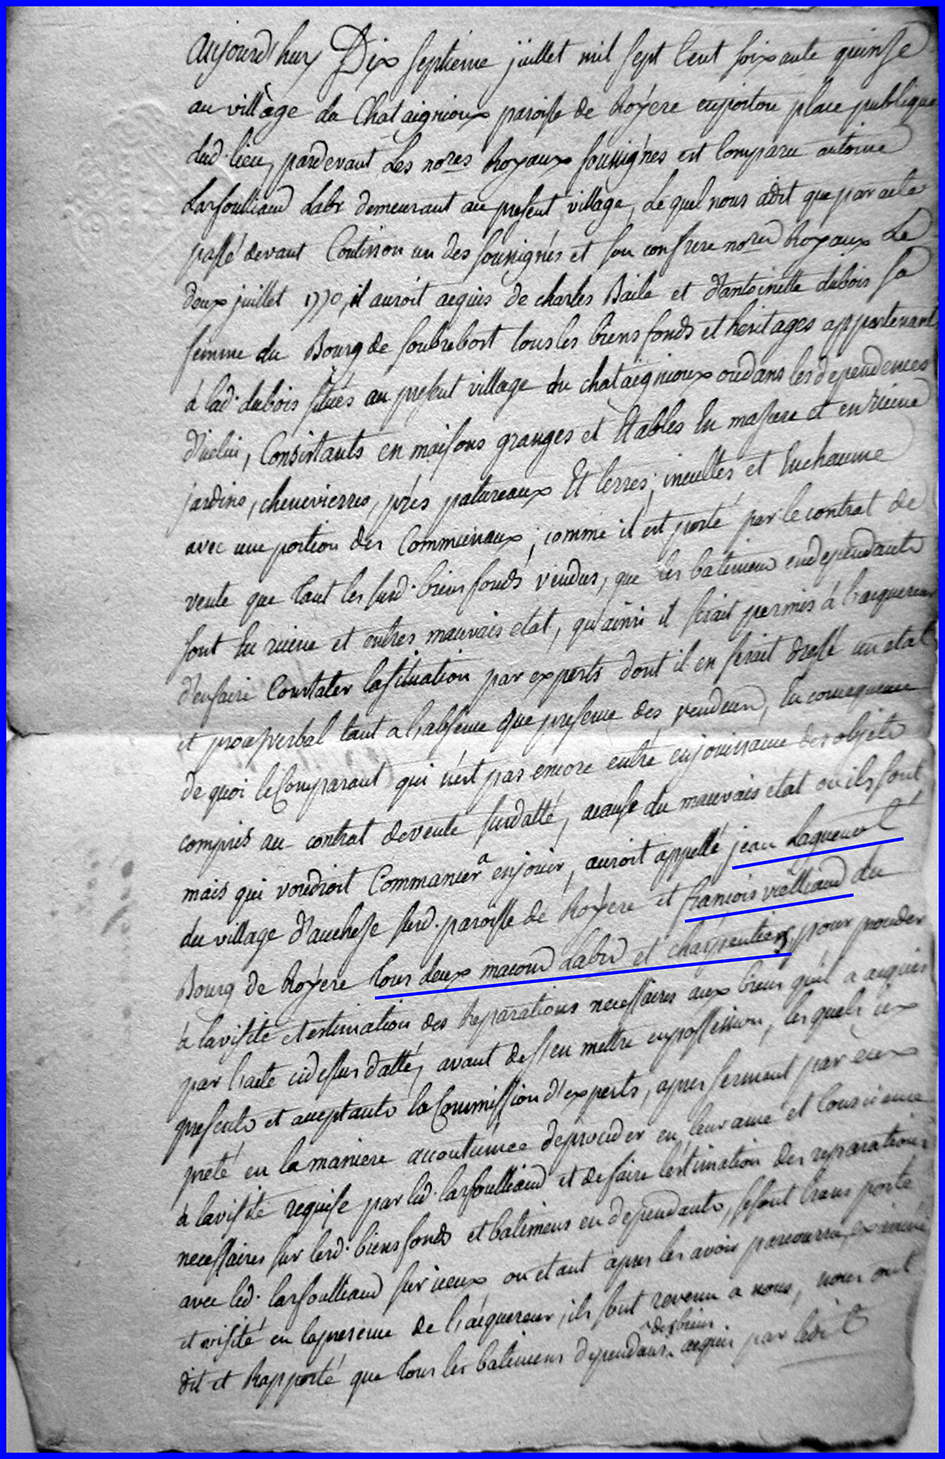 aujourd'huy Dix septieme juillet mil sept Cent soixante quinse
au village du Chataignioux paroisse de Royere en place publique
dud. lieu, pardevant Les nores Royaux soussignés est Comparu antoine
Larfoulliaud Labr demeurant au present village, Le quel nous a dit que par acte
passé devant Coutisson un des soussignés et son confrere nores Royaux Le
deux juillet 1770, il auroit acquis de charles Baile et d'antoinette dubois sa
femme du Bourg de soubrebost tous les biens fonds et heritages appartenant
à lad. dubois situés au present village du chataignioux ou dans les dependences
d'icelui, Consistants en maisons granges et Etables En masure et en ruine
jardins, chenevierres, près patureaux Et terres, incultes et Enchaume
avec une portion des Communaux, comme il est porté par le contrat de
vente que tant les susd. biens fonds vendus, que les batimens en dependants
sont En ruine et en tres mauvais etat, qu'ainsi il serait permis à l'acquereur
d'en faire Constater la situation par experts dont il en serait dressé un etat
et proces verbal tant a l'absence que presence des vendeurs, En consequence
de quoi le Comparant qui n'est pas encore entré en jouissance des objets
compris au contrat de vente susdatté, a cause du mauvais etat ou ils sont
mais qui voudroit Commancer a en jouir, auroit appellé jean Laguenet
du village d'auchese susd. paroisse de Royere et francois vialliaud du
Bourg de Royere tous deux macons Labrs et charpentiers, pour proceder
à la visite et estimation des Reparations necessaires aux biens qu'il a acquis
par l'acte ci dessus datté, avant de s'en mettre en possession, les quels icy
presents et acceptants la Commission d'experts, apres serment par eux
preté en la maniere accoutumée de proceder en leur ame et Conscience
à la visite requise par led. larfoulliaud et de faire l'estimation des reparations
necessaires sur lesd. biens fonds et batimens en dependants, se sont transporté
avec led. larfoulliaud sur iceux ou etant apres les avoir parcouru, examiné
et visité en la presence de l'acquereur, ils sont revenu a nous, nous ont
des biens
dit et Rapporté que tous les batimens dependans acquis par ledit